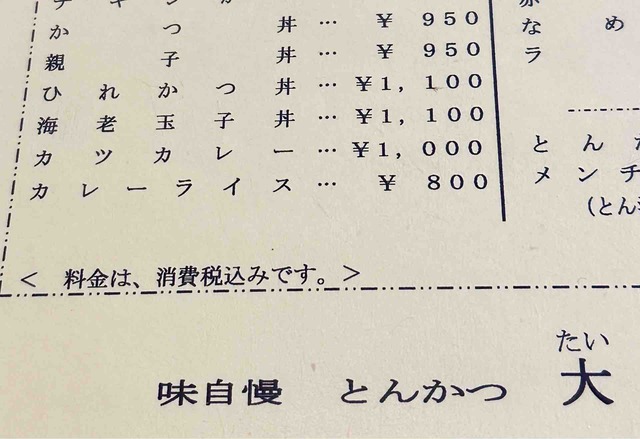 かつ丼…￥950
親子丼…￥950
ひれかつ丼…￥1,100
海老玉子丼…￥1,100
カツカレー…￥1,000
カレーライス…￥800
め
な
ラ
とん
メンチ
(とん
< 料金は、消費税込みです。>
たい
味自慢 とんかつ 大